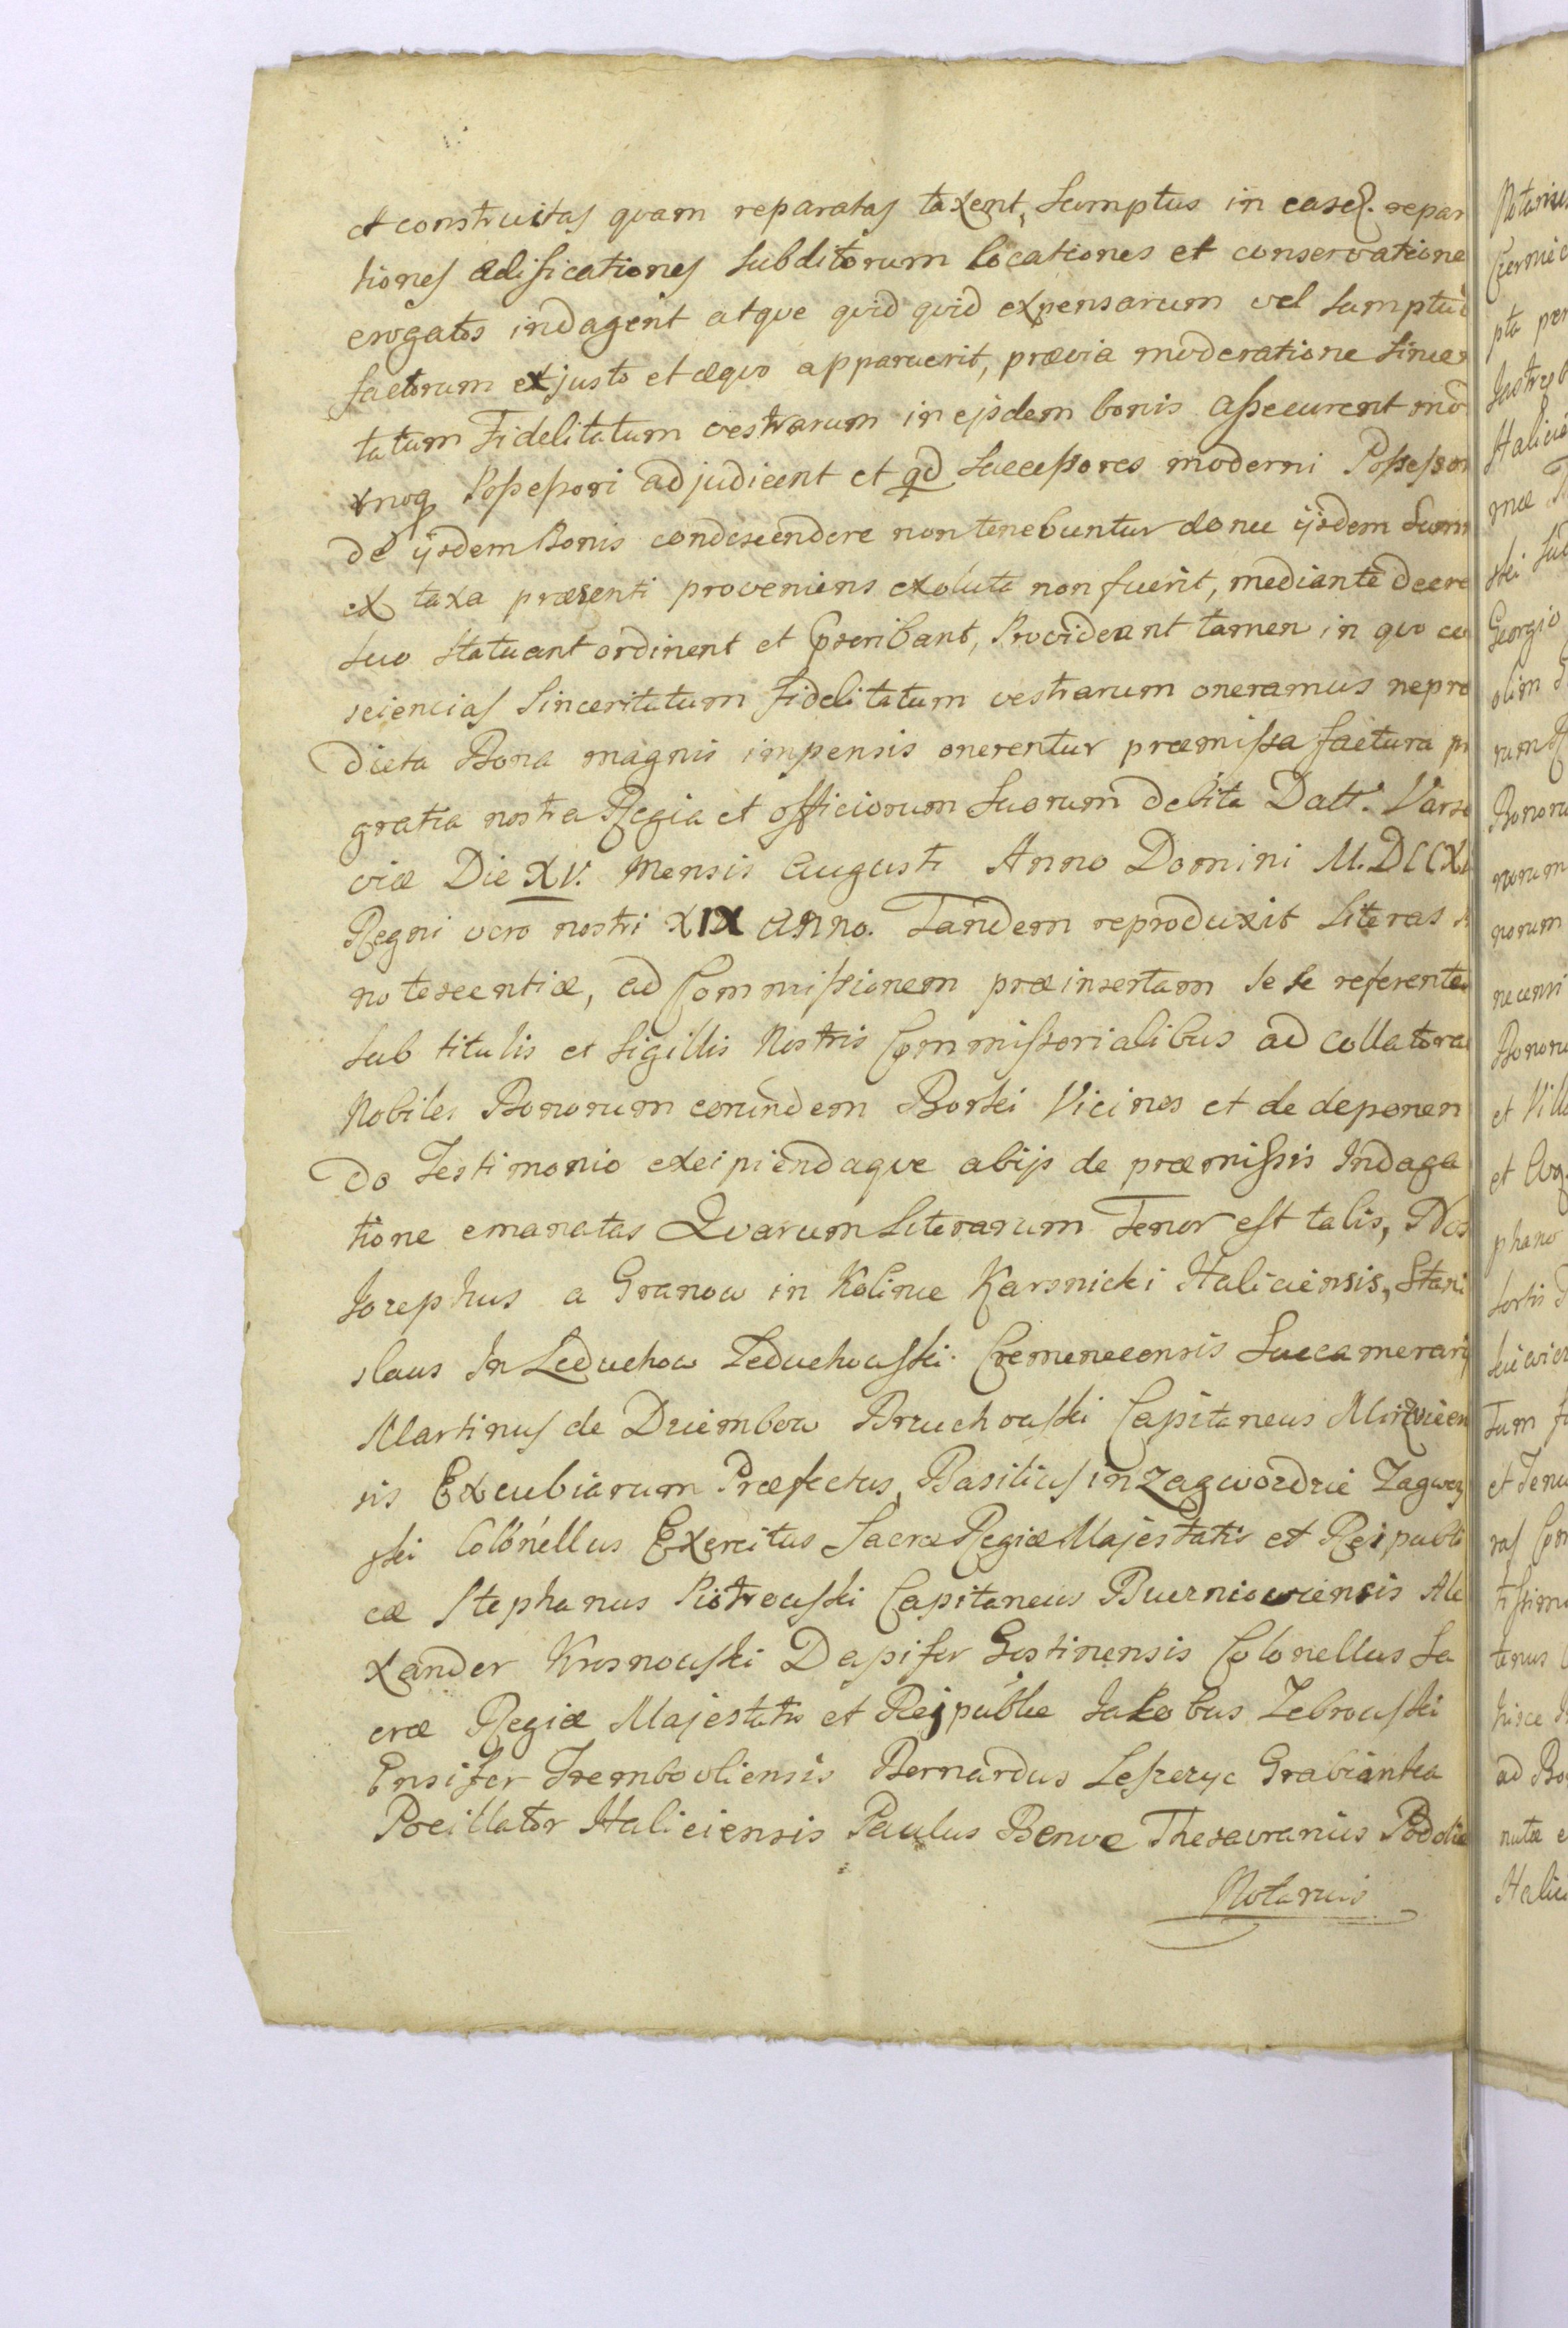 et construitas quam reparatas taxent, Sumptus in easq. repar
tiones ædificationes Subditorum locationes et conservatione
erogatos indagent atque quid quid expensarum vel Sumptuu
factorum ex justo et æquo apparuerit, prævia moderatione Since
tatum Fidelitatum vestrarum in ejsdem bonis assecurent mo
rnoq Possessori adjudicent et qd Successores moderni Possesso
de ijsdem Bonis condescendere non tenebuntur donec ijsdem Sum
ex taxa præsenti proveniens exoluta non fuerit, mediante decre
Suo Statuant ordinent et Conscribant, Provideant tamen in quo co
sciencias Sinceritatum Fidelitatum vestrarum oneramus ne præ
dicta Bona magnis impensis onerentur præmissa factura pr
gratia nostra Regia et officiorum Suorum debita Datt. Varso
viæ Die XV. Mensis Augusti Anno Domini M.DCCX
Regni vero nostri XIX anno. Tandem reproduxit Literas
notescentiæ, ad Commissionem præinsertam se se referente
Sub titulis et Sigillis Nostris Commissorialibus ad collatera
Nobiles Bonorum eorundem Borki Vicinos et de deponen
do Testimonio excipiendaque abijs de præmissis Indaga
tione emanatas Quarum Literarum Tenor est talis, Nos
Josephus a Granow in Kolince Karsnicki Haliciensis, Stani
slaus In Leduchow Leduchowski Cremenecensis Succamerarij
Martinus de Dziembow Bruchowski Capitaneus Mirzvien
sis Excubiarum Præfectus, Basilius in Zagwozdzie Zagwoy
ski Colonellus Exercitus Sacræ Regiæ Majestatis et Reipubli
cæ Stephanus Piotrowski Capitaneus Buczniowiensis Ale
xander Krosnowski Dapifer Gostinensis Colonellus Sa
cræ Regiæ Majestatis et Rejpublicæ Jakobus Zebrowski
Ensifer Trembovliensis Bernardus Leszczyc Grabianka
Pocillator Haliciensis Paulus Benve Thesauranius Podoliæ
Notarius